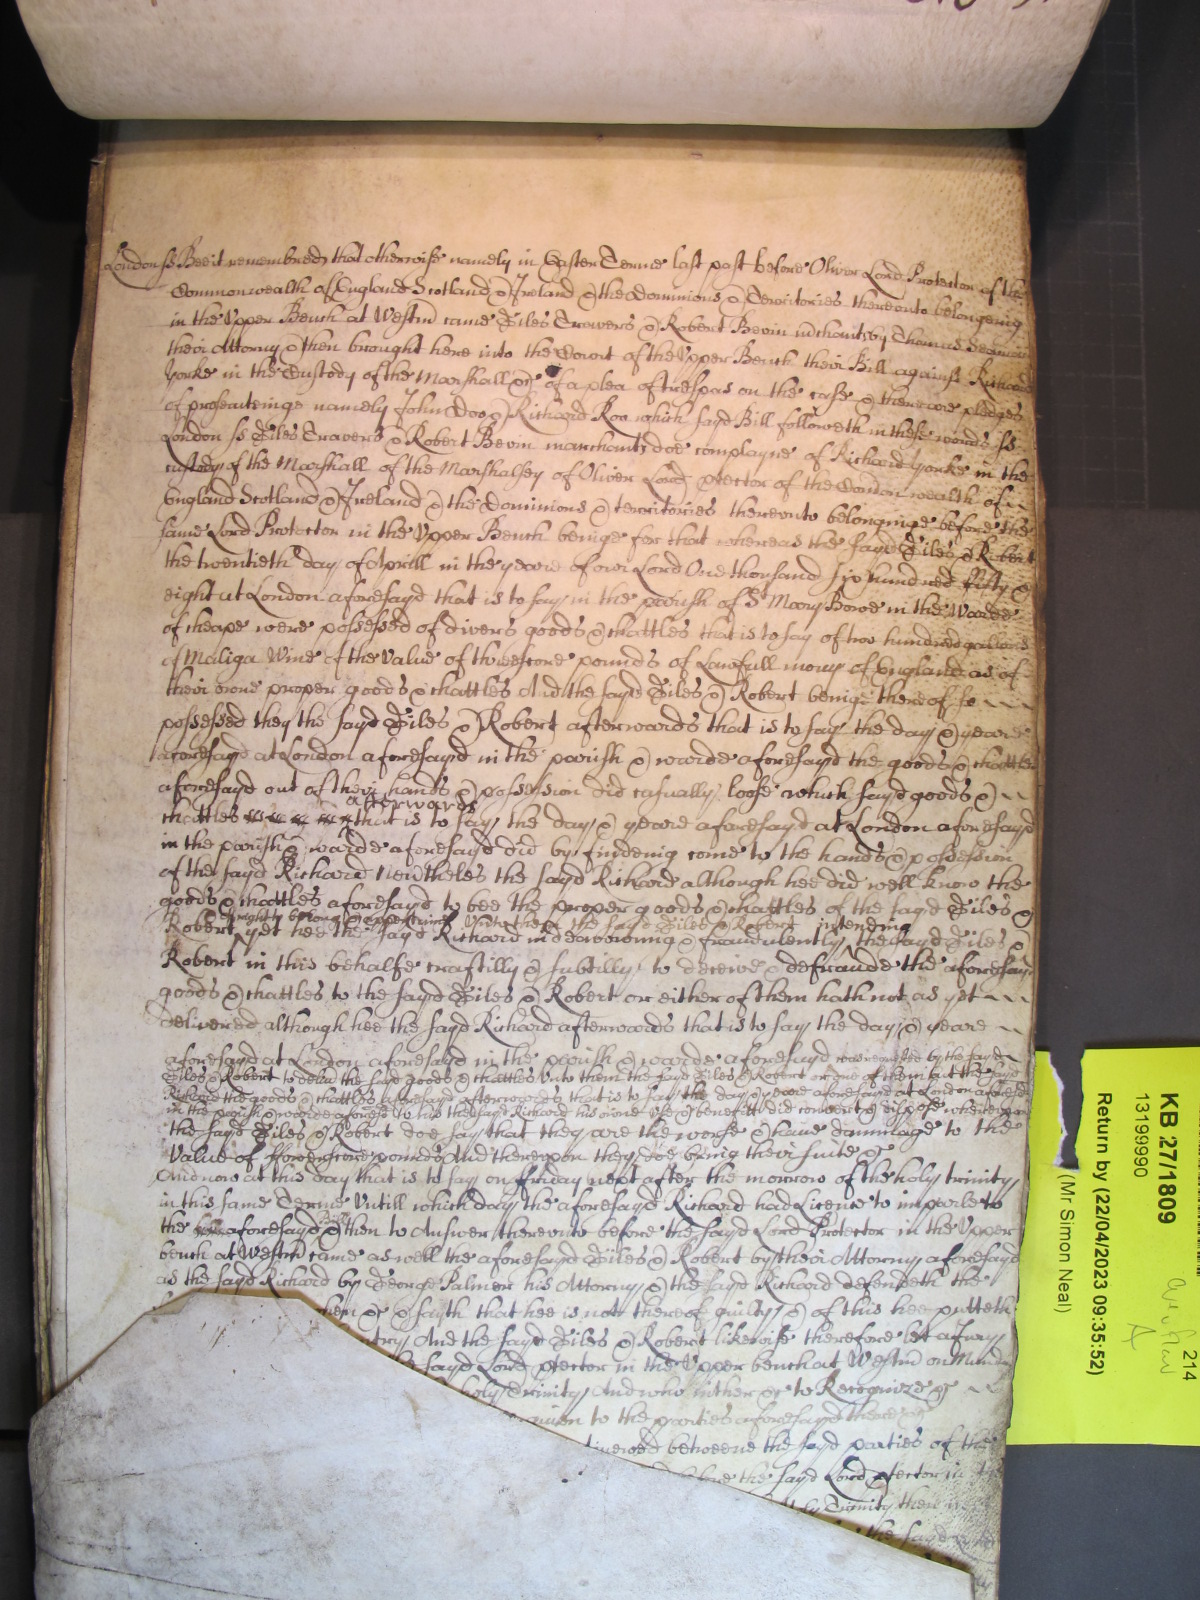 London ss Bee it remembred that otherwise namely in Easter Terme last past before Oliver Lord Protector of the
Commonwealth of England Scotland & Ireland & the Dominions & Territories thereonto belonging
in the Upper Bench at Westm̄ came Giles Travers & Robert Bevin m̄chants by Thomas
their Attorny & then brought here into the Court of the Upper Bench their Bill against Richard
Yorke in the Custody of the Marshall &c of a plea of trespas on the case & there are pledges
of prosecuteinge namely John Doo & Richard Roo which sayd Bill followeth in these words ss
London ss Giles Travers & Robert Bevin marchants doe complayne of Richard Yorke in the
custody of the Marshall of the Marshalsey of Oliver Lord p̱tector of the Common wealth of
England Scotland & Ireland & the Dominions & territories thereonto belonginge before the
same Lord Protector in the Upper Bench beinge for that whereas the sayd Giles & Robert
the twentieth day of Aprill in the yeare of our Lord One thousand six hundred fifty &
eight at London aforesayd that is to say in the parish of St Mary Bowe in the Warde
of cheape were possessed of divers goods & chattles that is to say of two hundred gallons
of Maliga Wine of the value of threescore pounds of Lawfull mony of England as of
their owne proper goods & chattles And the sayd Giles & Robert beinge there of so
possessed they the sayd Giles & Robert afterwards that is to say the day & yeare
aforesayd at London aforesayd in the parish & warde aforesayd the goods & chattles
aforesayd out of their hands & possession did casually loose which sayd goods &
afterwards
chattles that is to say the day & yeare aforesayd at London aforesayd
in the parish & warde aforesayd did by findeing come to the hands & possession
of the sayd Richard Neūtheles the sayd Richard although hee did well know the
goods & chattles aforesayd to bee the proper goods & chattles of the sayd Giles &
& of right to belong & appertaine unto them the sayd Giles & Robert intending
Robert yet hee the sayd Richard indeavouring & fraudulently the sayd Giles &
Robert in this behalfe craftilly & subtilly to deceive & defraude the aforesayd
goods & chattles to the sayd Giles & Robert or either of them hath not as yet
delivered although hee the sayd Richard afterwards that is to say the day & yeare
aforesayd at London aforesayd in the parish & warde aforesayd was requested by the sayd
Giles & Robert to deliū the sayd goods & chattles unto them the sayd Giles & Robert or one of them but the sayd
Richard the goods & chattles aforesayd afterwards that is to say the day & yeare aforesayd at London aforesayd
in the parish & warde aforesd to his the sayd Richard his owne use & benefitt did convert & dispose whereupon
the sayd Giles & Robert doe say that they are the worse & have dammage to the
value of fowerscore pounds And thereupon they doe bring their suite &c
And now at this day that is to say on friday next after the morrow of the holy trinity
in this same Terme Untill which day the aforesayd Richard had Licence to imparle to
the aforesayd Bill & then to Answer thereunto before the sayd Lord Protector in the Upper
bench at Westm̄ came as well the aforesayd Giles & Robert by their Attorny aforesayd
as the sayd Richard by George Palmer his Attorny & the sayd Richard defendeth the
when &c & sayth that hee is not thereof guilty & of this hee putteth
ntry And the sayd Giles & Robert likewise therefore let a Jury
sayd Lord p̱tector in the Upper bench at Westm̄ on Munday
holy Trinity And who neither &c to Recognize &c
given to the parties aforesayd there &c
tinewed betweene the sayd parties of the
before the sayd Lord p̱tector in the
Holy Trinity there
the sayd
KB 27/1809
13199990
Return by (22/04/2023 09:35:52)
(Mr Simon Neal)
214
A